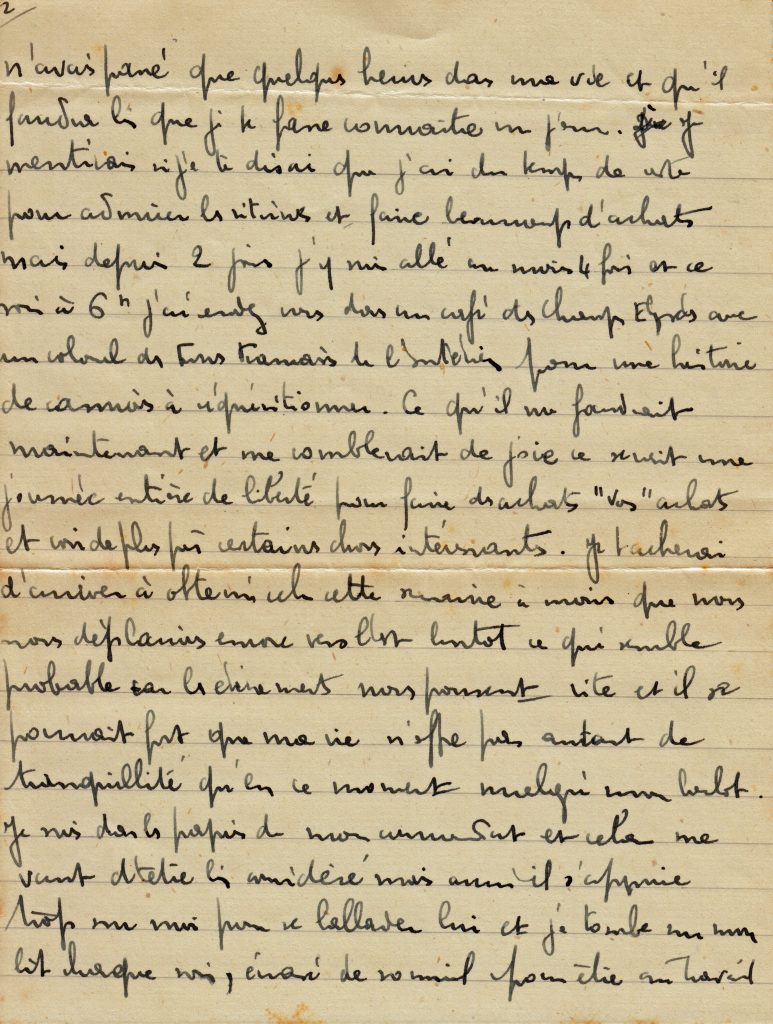 2
n'avais passé que quelques heures dans ma vie et qu'il
faudra bien que je te fasse connaître un jour. je
mentirais si je te disai que j'ai du temps de reste
pour admirer les vitrines et faire beaucoup d'achats
mais depuis 2 jours j'y suis allé au moins 4 fois et ce
soir à 6h j'ai rendez vous dans un café des Champs Elysées avec
un colonel des Forces Françaises de l'Intérieur pour une histoire
de camions à réquisitionner. Ce qu'il me faudrait
maintenant et me comblerait de joie ce serait une
journée entière de liberté pour faire des achats "vos" achats
et voir de plus près certaines choses intéressantes. Je tacherai
d'arriver à obtenir cela cette semaine à moins que nous
nous déplacions encore vers l'Est bientot ce qui semble
probable car les évènements nous poussent vite et il se
pourrait fort que ma vie n'offre pas autant de
tranquillité qu'en ce moment malgré mon boulot.
Je suis dans les papiers de mon commandant et cela me
vaut d'être bien considéré mais aussi il s'appuie
trop sur moi pour se ballader lui et je tombe sur mon
lit chaque soir, écrasé de sommeil pour être au travail